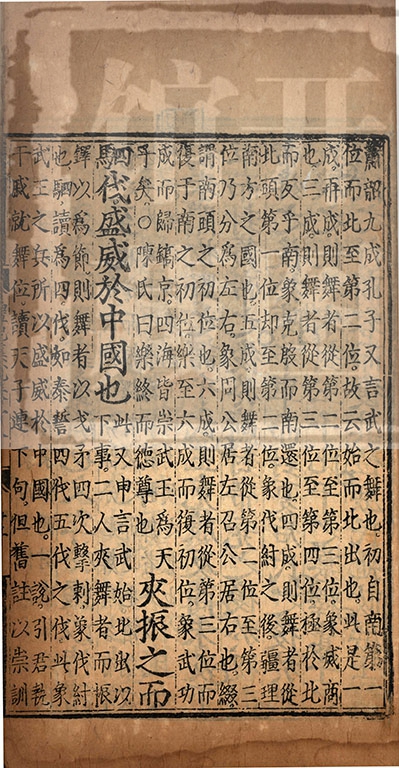 簫韶九成孔子又言武之舞也初自南第一
位而北至第二位故云始而北出也此是一
成再成則舞者從第二位至第三位象滅商
也三成則舞者從第三位至第四位極於北
而反乎南象克殷而南還也四成則舞者從
北頭第一位却至第二位象伐紂之後疆理
南方之國也五成則舞者從第二位至第三
位乃分爲左右象周公居左召公居右也綴
謂南頭之初位也六成則舞者從第三位而
復于南之初位樂至六成而復初位象武功
成而歸鎬京四海皆崇武王爲天
子矣○陳氏曰樂終而德尊也
夾振之而
駟伐盛威於中國也
此又申言武始北出以
下事二人夾舞者而振
鐸以爲節則舞者以戈矛四次擊刺象伐紂
也駟讀爲四伐如泰誓四伐五伐之伐此象
武王之兵所以盛威於中國也一說引君執
干戚就舞位讀天子連下句但舊註以崇訓